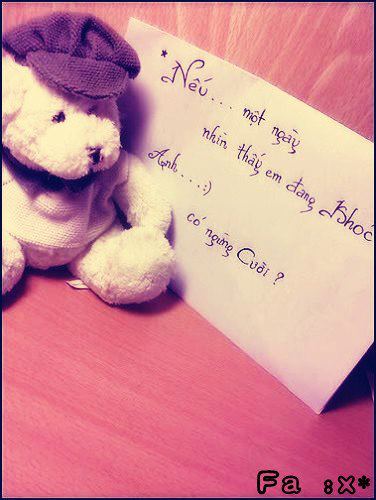 *Nếu.... một ngày
nhìn thấy em đang Khóc
Anh....:)
có ngừng Cười ?
Fa :x*